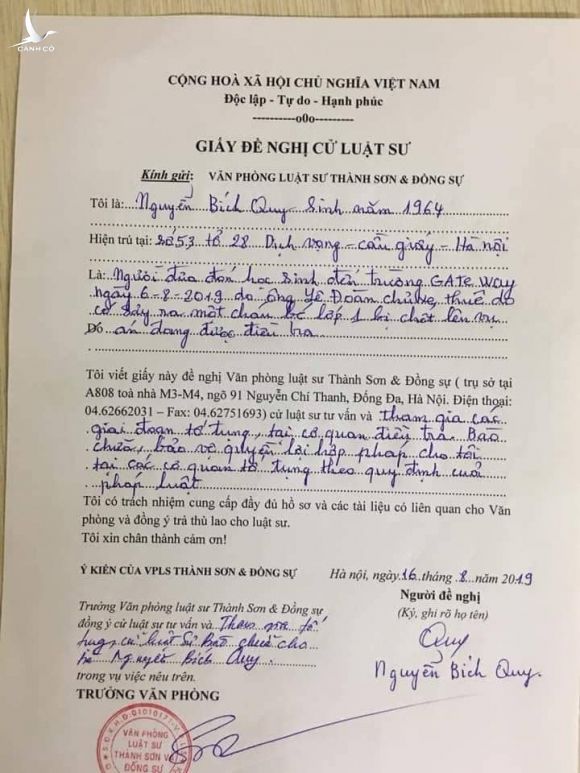 CÁNH CÒ
CỘNG HOÀ XÃ HỘI CHỦ NGHĨA VIỆT NAM
Độc lập - Tự do - Hạnh phúc
----------o0o----------
GIẤY ĐỀ NGHỊ CỬ LUẬT SƯ
Kính gửi: VĂN PHÒNG LUẬT SƯ THÀNH SƠN & ĐỒNG SỰ
Tôi là: Nguyễn Bích Quy Sinh năm 1964
Hiện trú tại: số 53 tổ 28 Dịch vọng - cầu giấy - Hà nội
Là: Người đưa đón học sinh đến trường GATE Way
ngày 6-8-2019 do ông Doãn thuê do
có sảy ra một cháu bé lớp 1 bị chết lên vụ
Đó án đang được điều tra
Tôi viết giấy này đề nghị Văn phòng luật sư Thành Sơn & Đồng sự ( trụ sở tại
A808 toà nhà M3-M4, ngõ 91 Nguyễn Chí Thanh, Đống Đa, Hà Nội. Điện thoại:
04.62662031 – Fax: 04.62751693) cử luật sư tư vấn và tham gia các
giai đoạn tố tụng, tại cơ quan điều tra. Bào
chữa, bảo vệ quyền lợi hợp pháp cho tôi
tại các cơ quan tố tụng theo quy định của
pháp luật
Tôi có trách nhiệm cung cấp đầy đủ hồ sơ và các tài liệu có liên quan cho Văn
phòng và đồng ý trả thù lao cho luật sư.
Tôi xin chân thành cảm ơn!
Ý KIẾN CỦA VPLS THÀNH SƠN & ĐỒNG SỰ
Hà nội, ngày 16 tháng 8 năm 2019
Người đề nghị
(Ký, ghi rõ họ tên)
Quy
Nguyễn Bích Quy.
Trưởng Văn phòng luật sư Thành Sơn & Đồng sự
đồng ý cử luật sư tư vấn và Tham gia tố
tụng cử luật sư Bào chữa cho
bà Nguyễn Bích Quy.
trong vụ việc nêu trên.
TRƯỞNG VĂN PHÒNG
VĂN PHÒNG
LUẬT SƯ
THÀNH SƠN VÀ
ĐỒNG SỰ